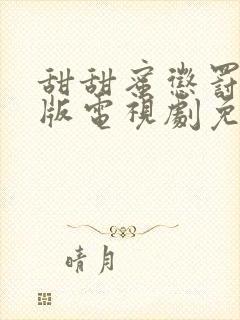 甜甜蜜懲罰
版電視劇免
晴月